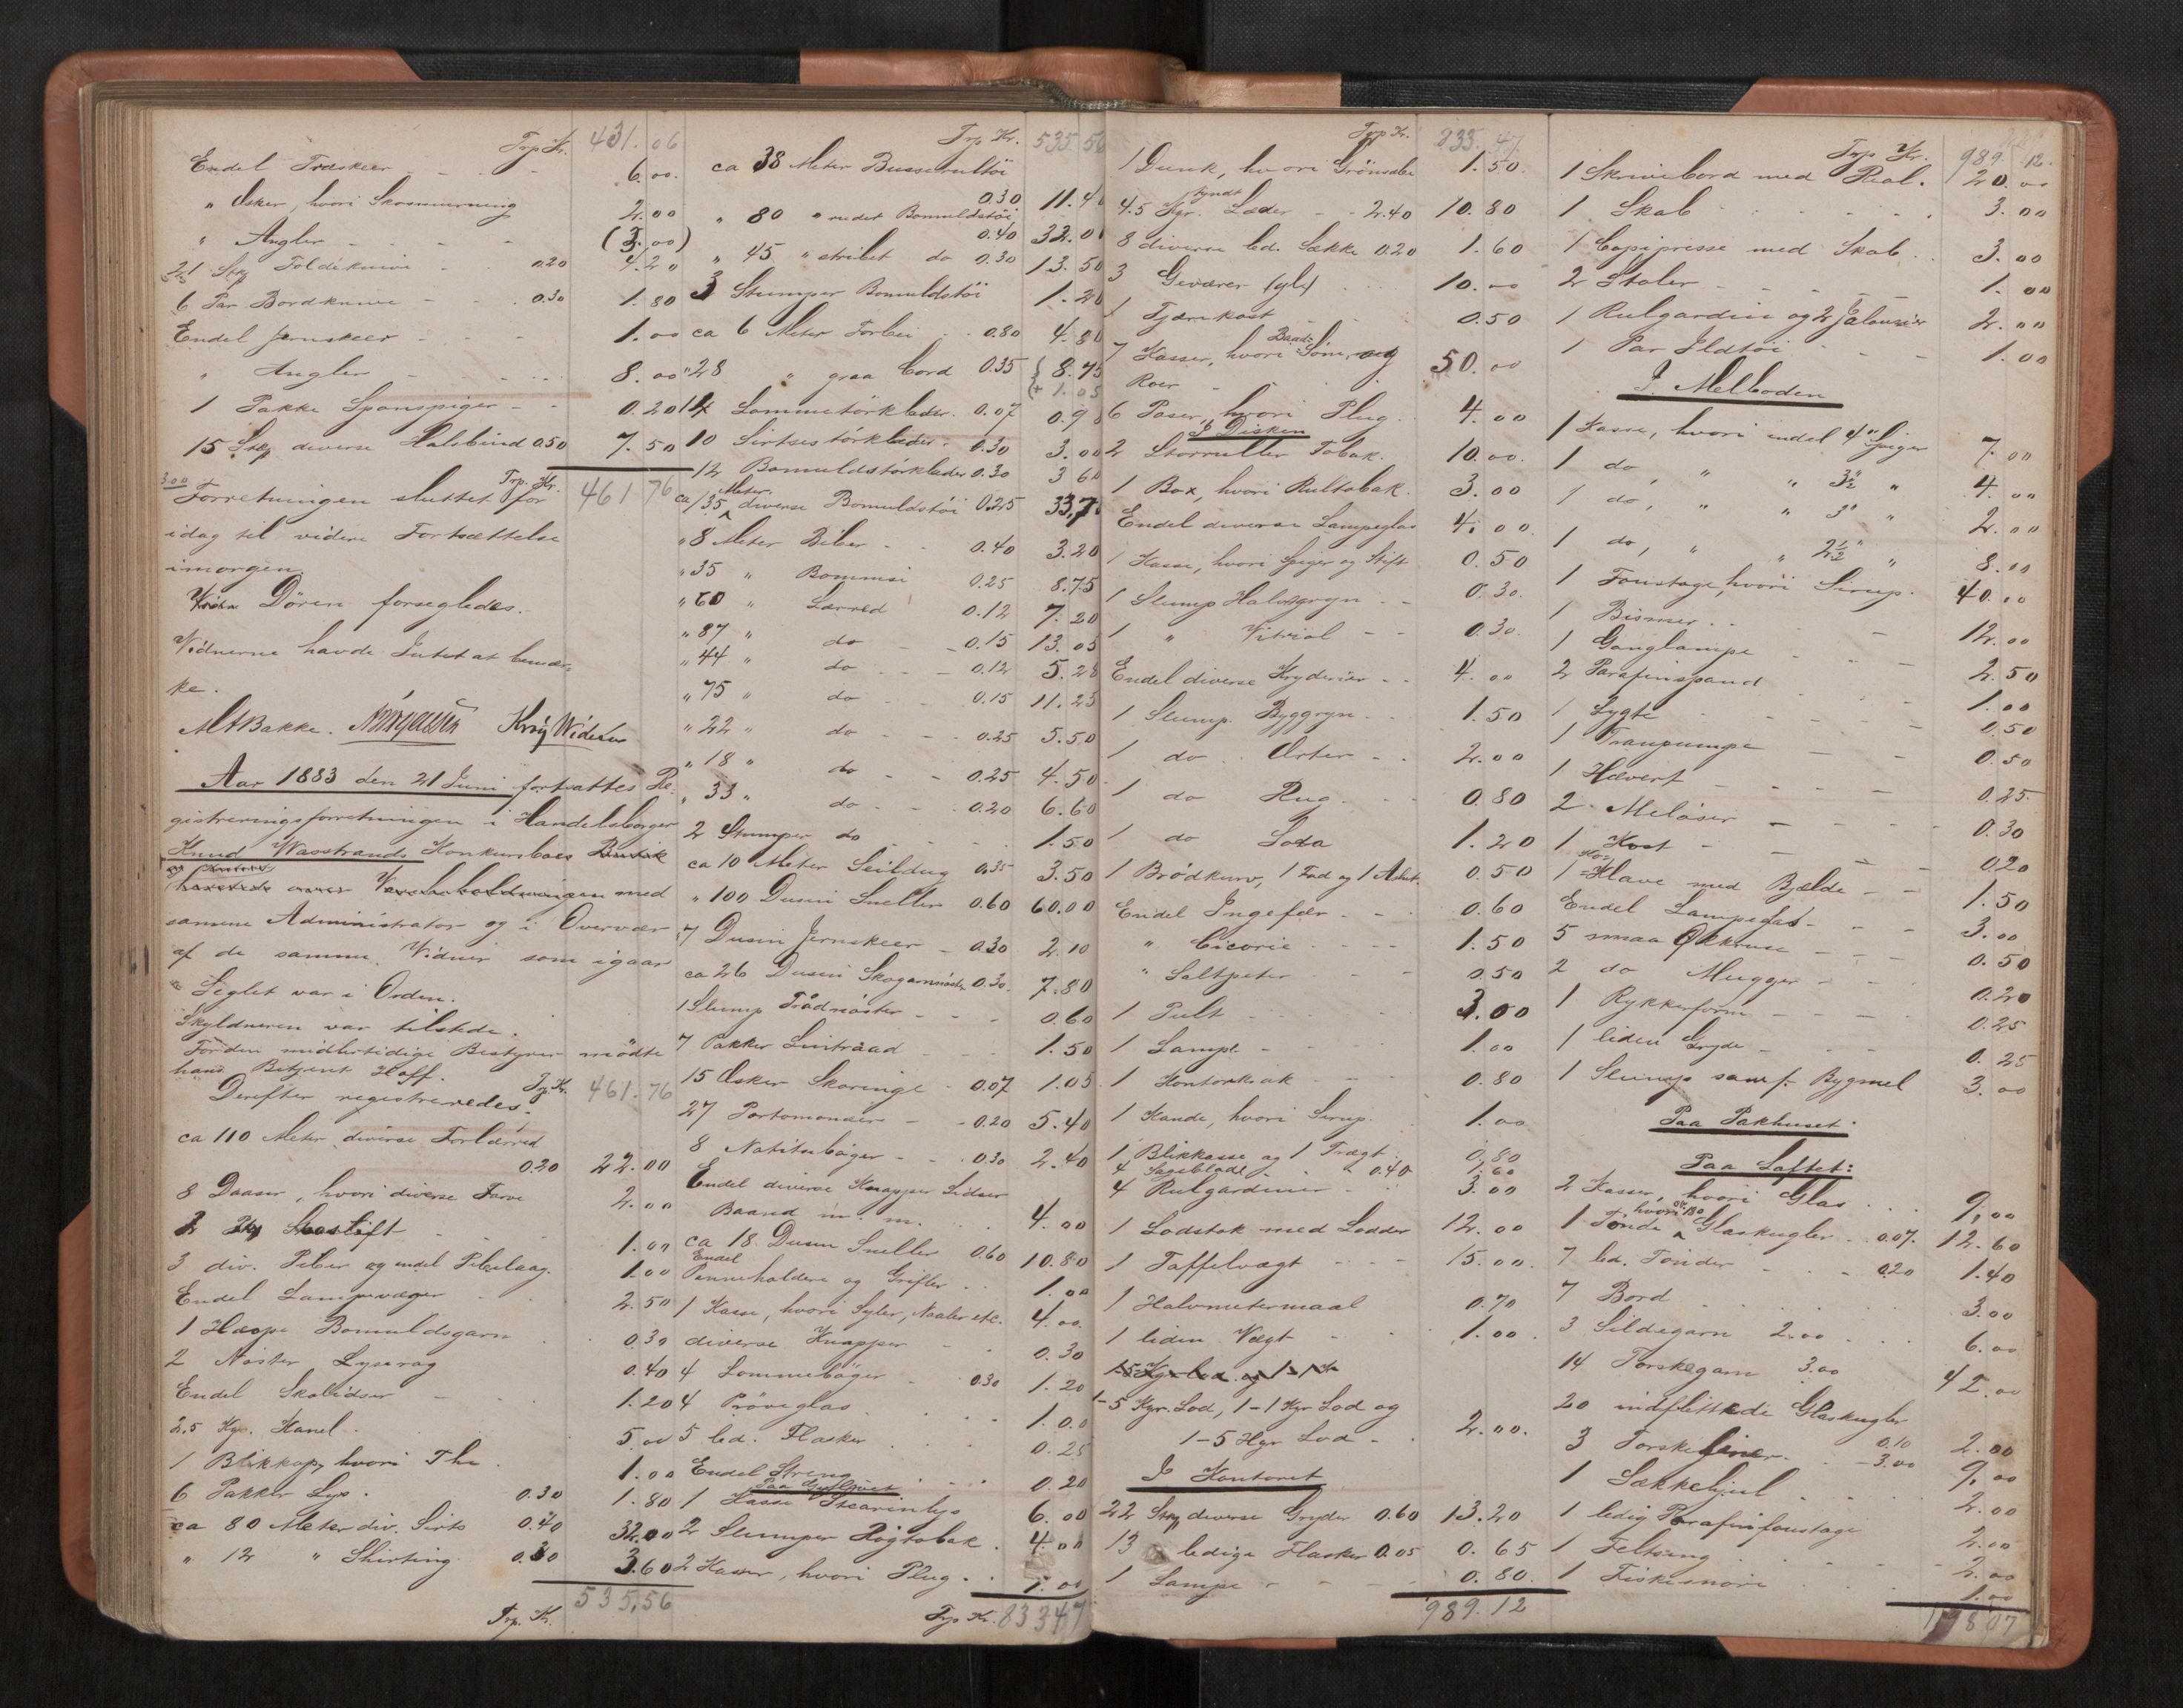 Trp. Kr. 431.06
Endel Træskeer - - - 6.00.
" Æsker, hvori Skosmurning 2.00
" Angler - - - - (3.00)
21 Stk Foldeknive - - 0.20 4.20
6 Par Bordknive - - 0.30 1.80
Endel Jernskeer - - - 1.00
" Angler - - - - 8.00
1 Pakke Spanspiger - - 0.20
15 Stk diverse Halsbind 0.50 7.50
3.00 Trp. Kr. 461.76
Forretningen sluttet for
idag til videre Fortsættelse
imorgen.
Døren forsegledes.
Vidnerne havde Intet at bemær-
ke.
MABakke. Kris Widerøe
Aar 1883 den 21 Juni fortsattes Re-
gistreringsforretningen i Handelsborger
Knud Wasstrands Konkursboes Butik
med
samme Administrator og i Overvær
af de samme Vidner som igaar
Seglet var i Orden.
Skyldneren var tilstede.
For den midlertidige Bestyrer mødte
hans Betjent Hoff.
Derefter registreredes: Trp. Kr. 461.76
ca 110 Meter diverse Forlærred
0.20 22.00
8 Daaser, hvori diverse Farve 2.00
2 Skostift - - 1.00
3 div. Piber og endel Pibelaag. 1.00
Endel Lampevæger - - 2.50
1 Hæspe Bomuldsgarn 0.30
2 Nøster Lysevæg 0.40
Endel Skolidser - - 1.20
2,5 Kgr. Kanel - - 5.00
1 Blikkop, hvori The - 1.00
6 Pakker Lys. 0.30 1.80
ca 80 Meter div. Sirts 0.40 32.00
" 12 " Shirting 0.30 3.60
Trp. Kr. 535,56
Trp. Kr. 535.56
ca 38 Meter Busserultøi
0.30 11.40
" 80 " rudet Bomuldstøi
0.40 32.00
" 45 " stribet do 0.30 13.50
3 Stumper Bomuldstøi 1.20
ca 6 Meter Forbei - - 0.80 4.80
" 28 " graa Cord 0.35 8.75
(+ 1.05
14 Lommetørklæder. 0.07 0.98
10 Sirtsestørklæder - 0.30 3.00
12 Bomuldstørklæder 0.30 3 60
ca 135 Meter diverse Bomuldstøi 0.25 33,75
" 8 Meter Biber - - 0.40 3.20
" 35 " Bommesi 0.25 8.75
" 60 " Lærred 0.12 7.20
" 87 " do - - 0.15 13.05
" 44 " do - - 0.12 5.28
" 75 " do - 0.15 11.25
" 22 " do - - 0.25 5.50
" 18 " do - - 0.25 4.50
" 33 " do - - 0.20 6.60
2 Stumper do - - - 1.50
ca 10 Meter Seildug 0.35 3.50
" 100 Dusin Sneller 0.60 60.00
7 Dusin Jernskeer - 0.30 2.10
ca 26 Dusin Skogarnnøster 0.30. 7.80
1 Slump Trådnøster - - 0.60
7 Pakker Lintraad - - 1.50
15 Æsker Skoringe - 0.07 1.05
27 Portomonæer - - 0.20 5.40
8 Notitsbøger - - 0.30 2.40
Endel diverse Knapper Lidser
Baand m. m. - - 4.00
ca 18 Dusin Sneller 0.60 10.80
Endel Penneholdere og Grifler - - 1.00
1 Kasse, hvori Syler, Naaler etc. 4.00
diverse Knapper - - 0.30
4 Lommebøger - 0.30 1.20
4 Prøveglas - - - 1.00
5 led. Flasker - - - 0.25
Endel Streng - - - 0.20
Paa Gulvet
1 Kasse Stearinlys 6.00
2 Slumper Røgtobak - 4.00
2 Kasser, hvori Plug - - 1.00
Trp. Kr. 833.47
Trp. Kr. 833.47
1 Dunk, hvori Grønsæbe 1.50.
4.5 Kgr. tyndt Læder - - 2.40 10.80
8 diverse led. Sække 0.20 1.60
3 Geværer (gl.) - - - 10.00
1 Tjærekost - - - 0.50
7 Kasser, hvori Baad-Søm, og
Roer - - - - 50.00
6 Poser, hvori Plug - 4.00
I Disken
2 Storruller Tobak. 10.00.
1 Box, hvori Rultobak. 3.00
Endel diverse Lampeglas 4.00
1 Kasse, hvori Spiger og Stift 0.50
1 Slump Havregryn - - 0.30.
1 " Vitriol - - 0.30.
Endel diverse Kryderier - - 4.00
1 Slump. Byggryn - - 1.50
1 do. Ærter - - 2.00
1 do Rug. - - 0.80
1 do Soda - - 1.20
1 Brødkurv, 1 Fad og 1 Asket. 0.50
Endel Ingefær - - 0.60
" Cicorie - - - - 1.50
" Saltpeter - - - 0.50
1 Pult - - - - 3.00
1 Lampe - - - - 1.00
1 Kontorkrak - - 0.80
1 Kande, hvori Sirup. 1.00
1 Blikkasse og 1 Trægt. 0,80
4 Sageblade - - 0.40 1.60
4 Rulgardiner - - 3.00
1 Lodstok med Lodder 12.00
1 Taffelvægt - - - 15.00.
1 Halvmetermaal 0.70
1 liden Vægt - - 1.00.
1-5 Kgr. Lod, 1-1 Kgr Lod og
1-5 Hgr Lod - - 2.00.
I Kontoret
22 Stk diverse Gryder 0.60 13.20
13 ledige Flasker 0.05 0.65
1 Lampe - - - - 0.80.
989.12
Trp. Kr. 989 12.
1 Skrivebord med Reol. 20.00
1 Skab - - - - - 3.00
1 Copipresse med Skab - - 3.00
2 Stoler - - - - 1.00
1 Rulgardin og 2 Jalousier 2.00
1 Par Ildtøi - - - 1.00
I Melboden
1 Kasse, hvori endel 4" Spiger 7.00
1 do, " " 3½" " 4.00
1 do, " " 3" " 2.00
1 do, " " 2½" " 8.00
1 Foustage, hvori Sirup. 40.00
1 Bismer - - - 12.00
1 Ganglampe - - - 2.50
2 Parafinspand - - 1.00
1 Lygte - - - - 0.50
1 Tranpumpe - - - 0.50
1 Hævert - - - - 0.25.
2 Meløser - - - 0.30
1 Kost - - - - 0.20
1 Ko-Klave med Bjelde - - 1.50
Endel Lampeglas - - - 3.00
5 smaa Ølkruse - - - 0.50
2 do Mugger - - - 0.20
1 Rykkerform - - - - 0.25
1 liden Gryde - - - 0.25
1 Slump samf. Bygmel 3.00
Paa Pakhuset
Paa Loftet:
2 Kasser, hvori Glas - - 9,00
1 Tønde hvori 180 Glaskugler - 0.07. 12.60
7 led. Tønder - - - 0.20 1.40
7 Bord - - - - 3.00
3 Sildegarn 2.00 - - 6.00
14 Torskegarn 3.00 42.00
20 indflettede Glaskugler
0.10 2.00
3 Torskeliner - - 3.00 9,00
1 Sækkehjul - - - 2.00
1 ledig Parafinfoustage 2.00
1 Feltseng - - - - 2.00
1 Fiskesnøre - - - 1.00